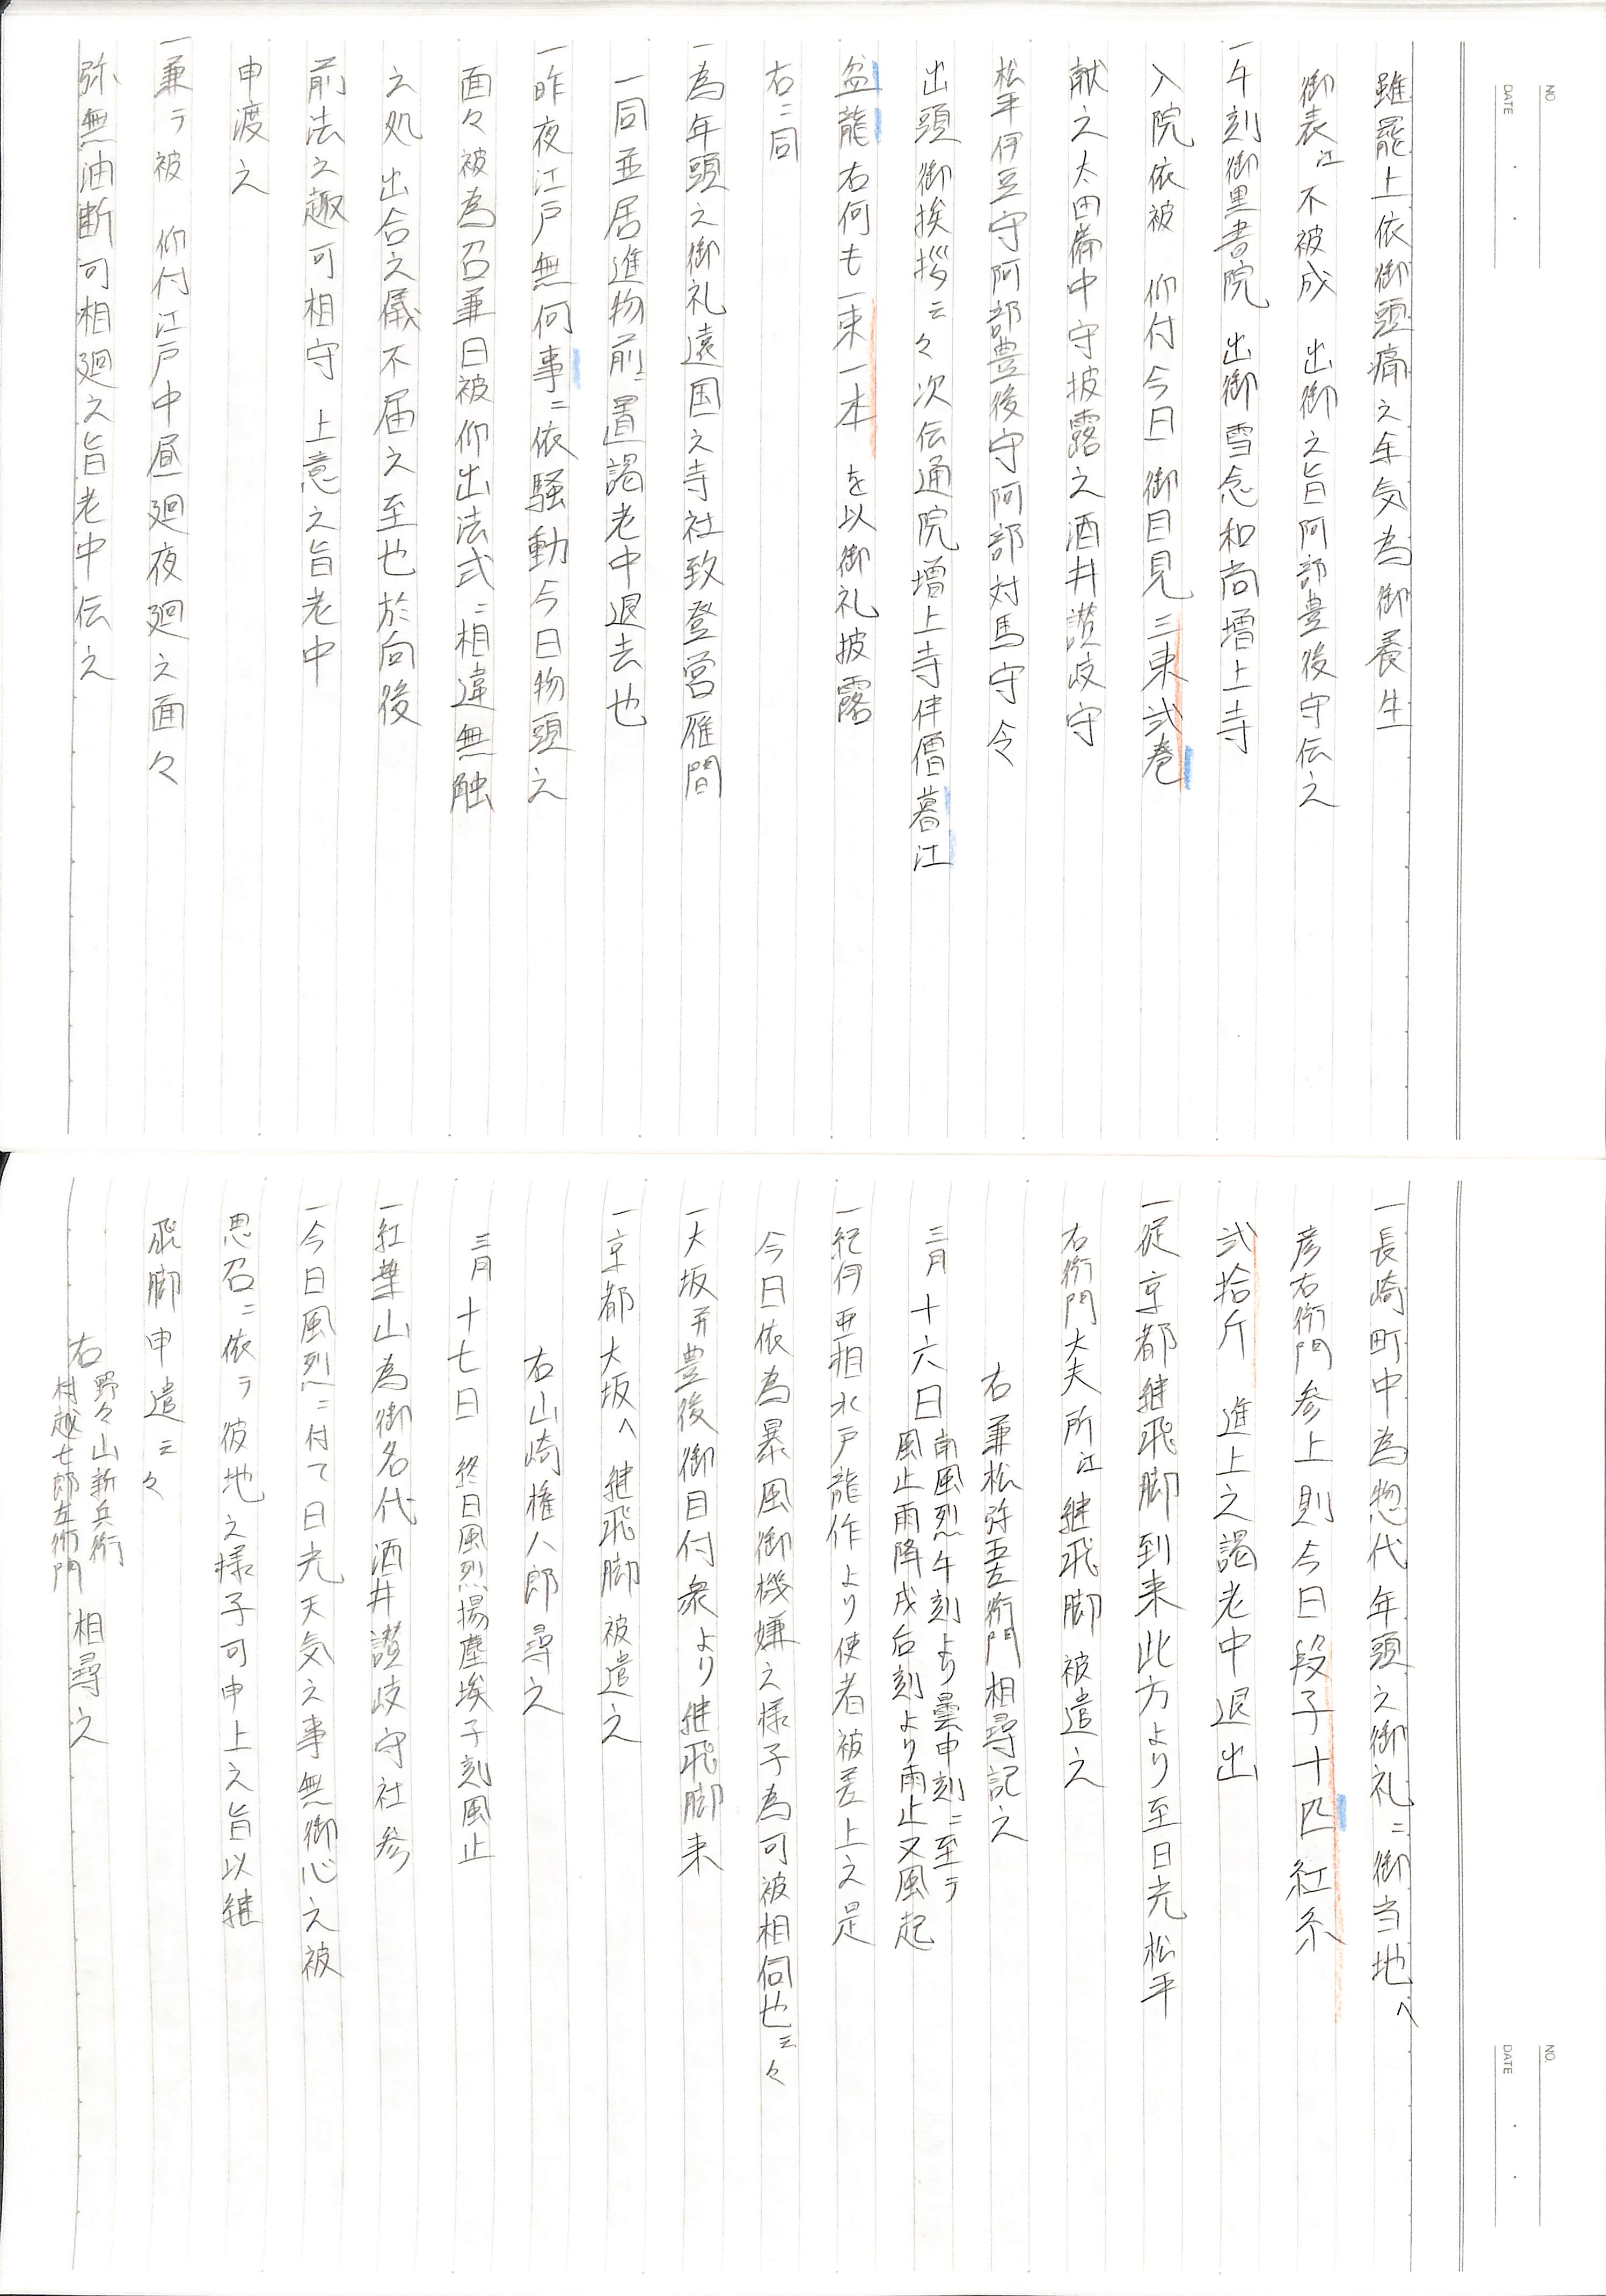 NO.
DATE
雖罷上依御頭痛之余気為御養生
御表江不被成 出御之旨阿部豊後守伝之
一午刻御黒書院 出御雪念和尚増上寺
入院依被 仰付今日御目見三束弐巻
献之太田備中守披露之酒井讃岐守
松平伊豆守阿部豊後守阿部対馬守令
出頭御挨拶云々次伝通院増上寺伴僧暮江
盆龍右何も一束一本を以御礼披露
右ニ同
一為年頭之御礼遠国之寺社致登営雁間
一同並居進物前ニ置謁老中退去也
一昨夜江戸無何事ニ依騒動今日物頭之
面々被為召兼日被仰出法式ニ相違無触
之処出合之儀不届之至也於向後
前法之趣可相守 上意之旨老中
申渡之
一兼テ被 仰付江戸中昼廻夜廻之面々
弥無油断可相廻之旨老中伝之
NO.
DATE
一長崎町中為惣代年頭之御礼ニ御当地へ
彦右衛門参上則今日段子十匹紅糸
弐拾斤 進上之謁老中退出
一従京都継飛脚到来此方より至日光松平
右衛門大夫所江継飛脚被遣之
右兼松弥五左衛門相尋記之
三月十六日 南風烈午刻より曇申刻ニ至テ
風止雨降戌后刻より雨止又風起
一紀伊亜相水戸龍作より使者被差上之是
今日依為暴風御機嫌之様子為可被相伺也云々
一大坂并豊後御目付衆より継飛脚来
一京都大坂へ継飛脚被遣之
右山崎権八郎尋之
三月十七日 終日風烈揚塵埃子刻風止
一紅葉山為御名代酒井讃岐守社参
一今日風烈ニ付て日光天気之事無御心之被
思召ニ依テ彼地之様子可申上之旨以継
飛脚申遣云々
右 野々山新兵衛
村越七郎左衛門 相尋之